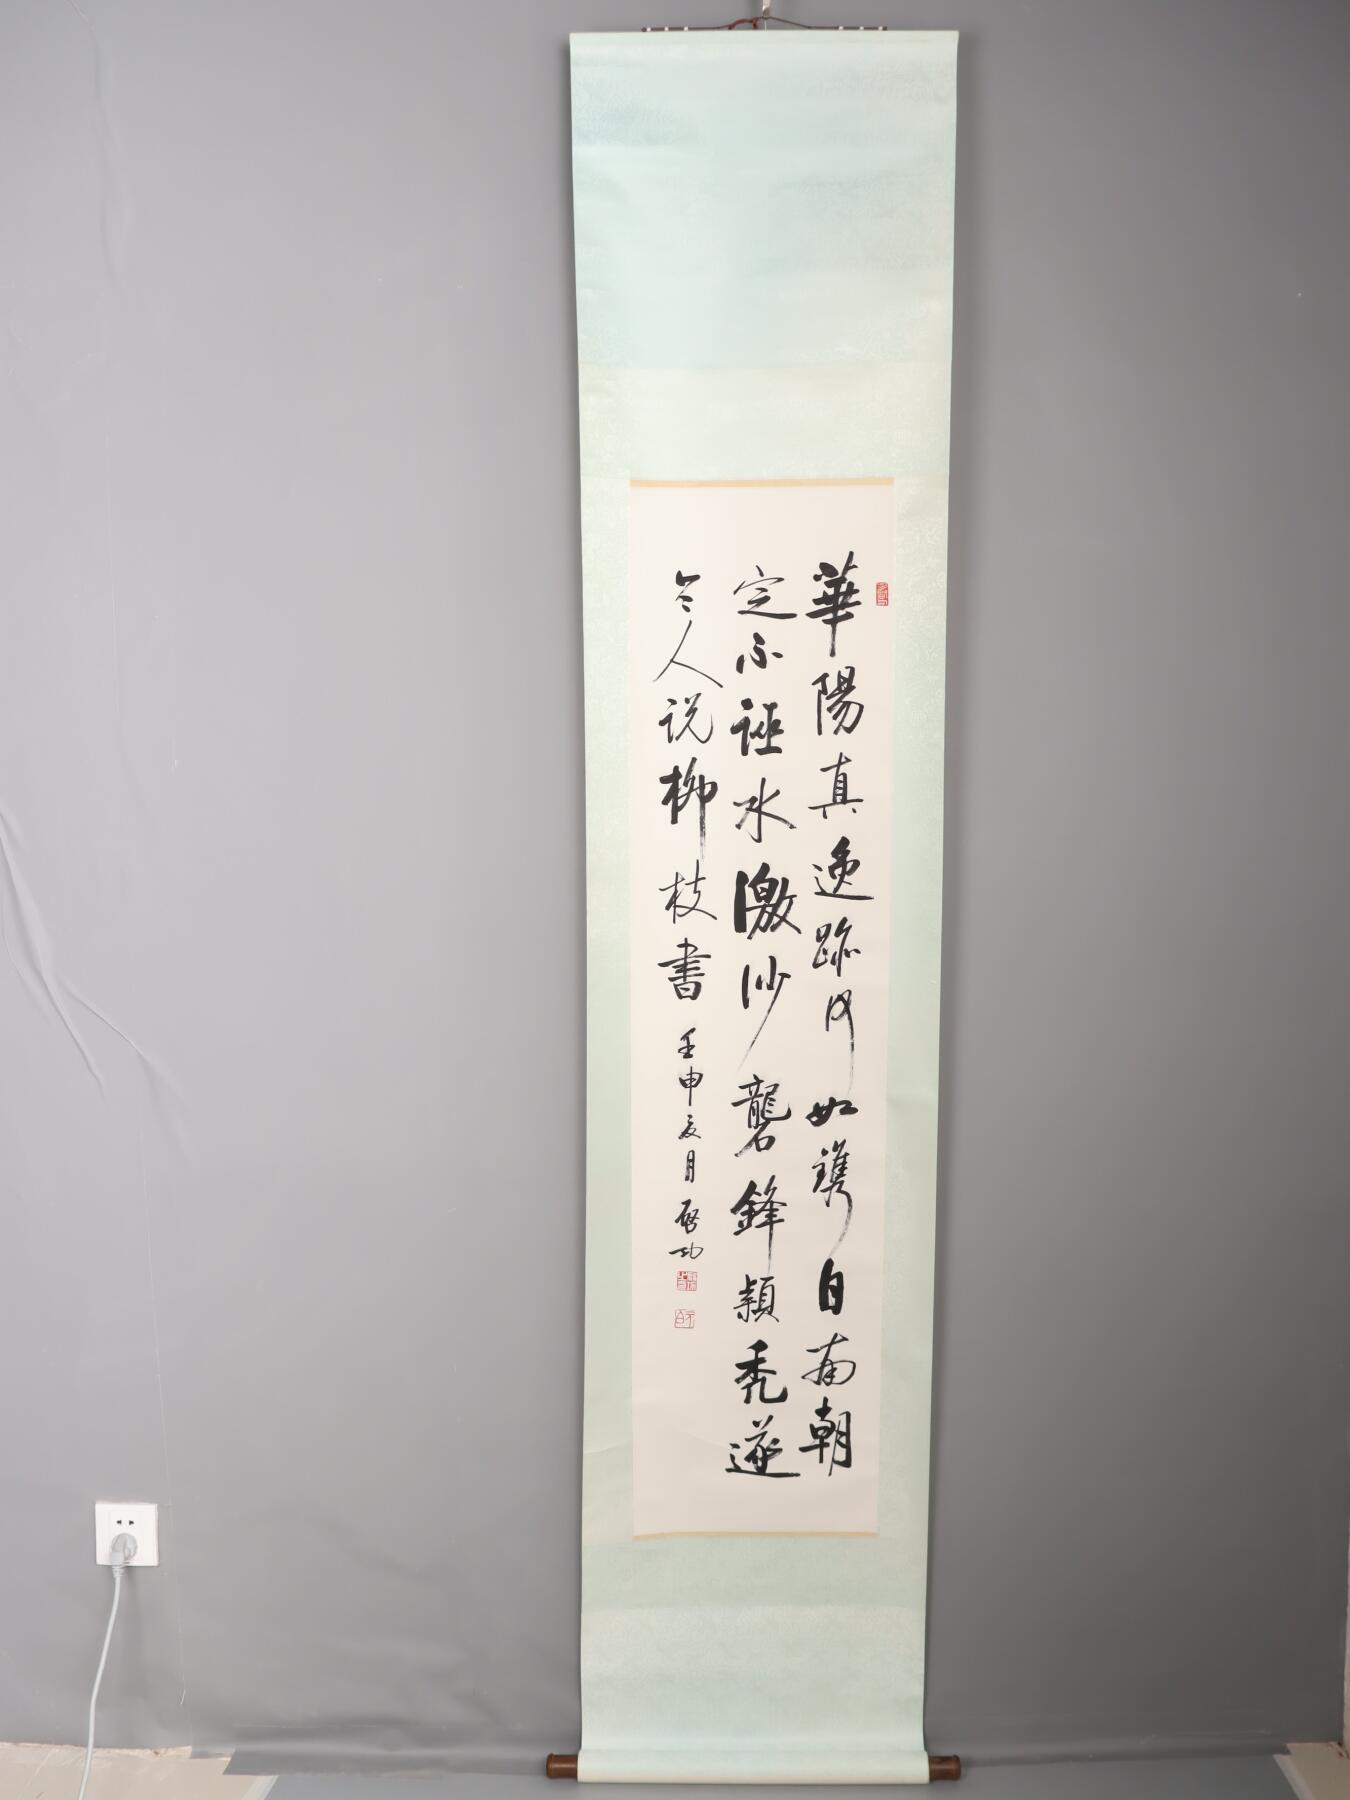 華陽真逸跡何如鐫自南朝
定不誣水激沙礱鋒穎禿遂
令人说柳枝書
壬申夏月啓功